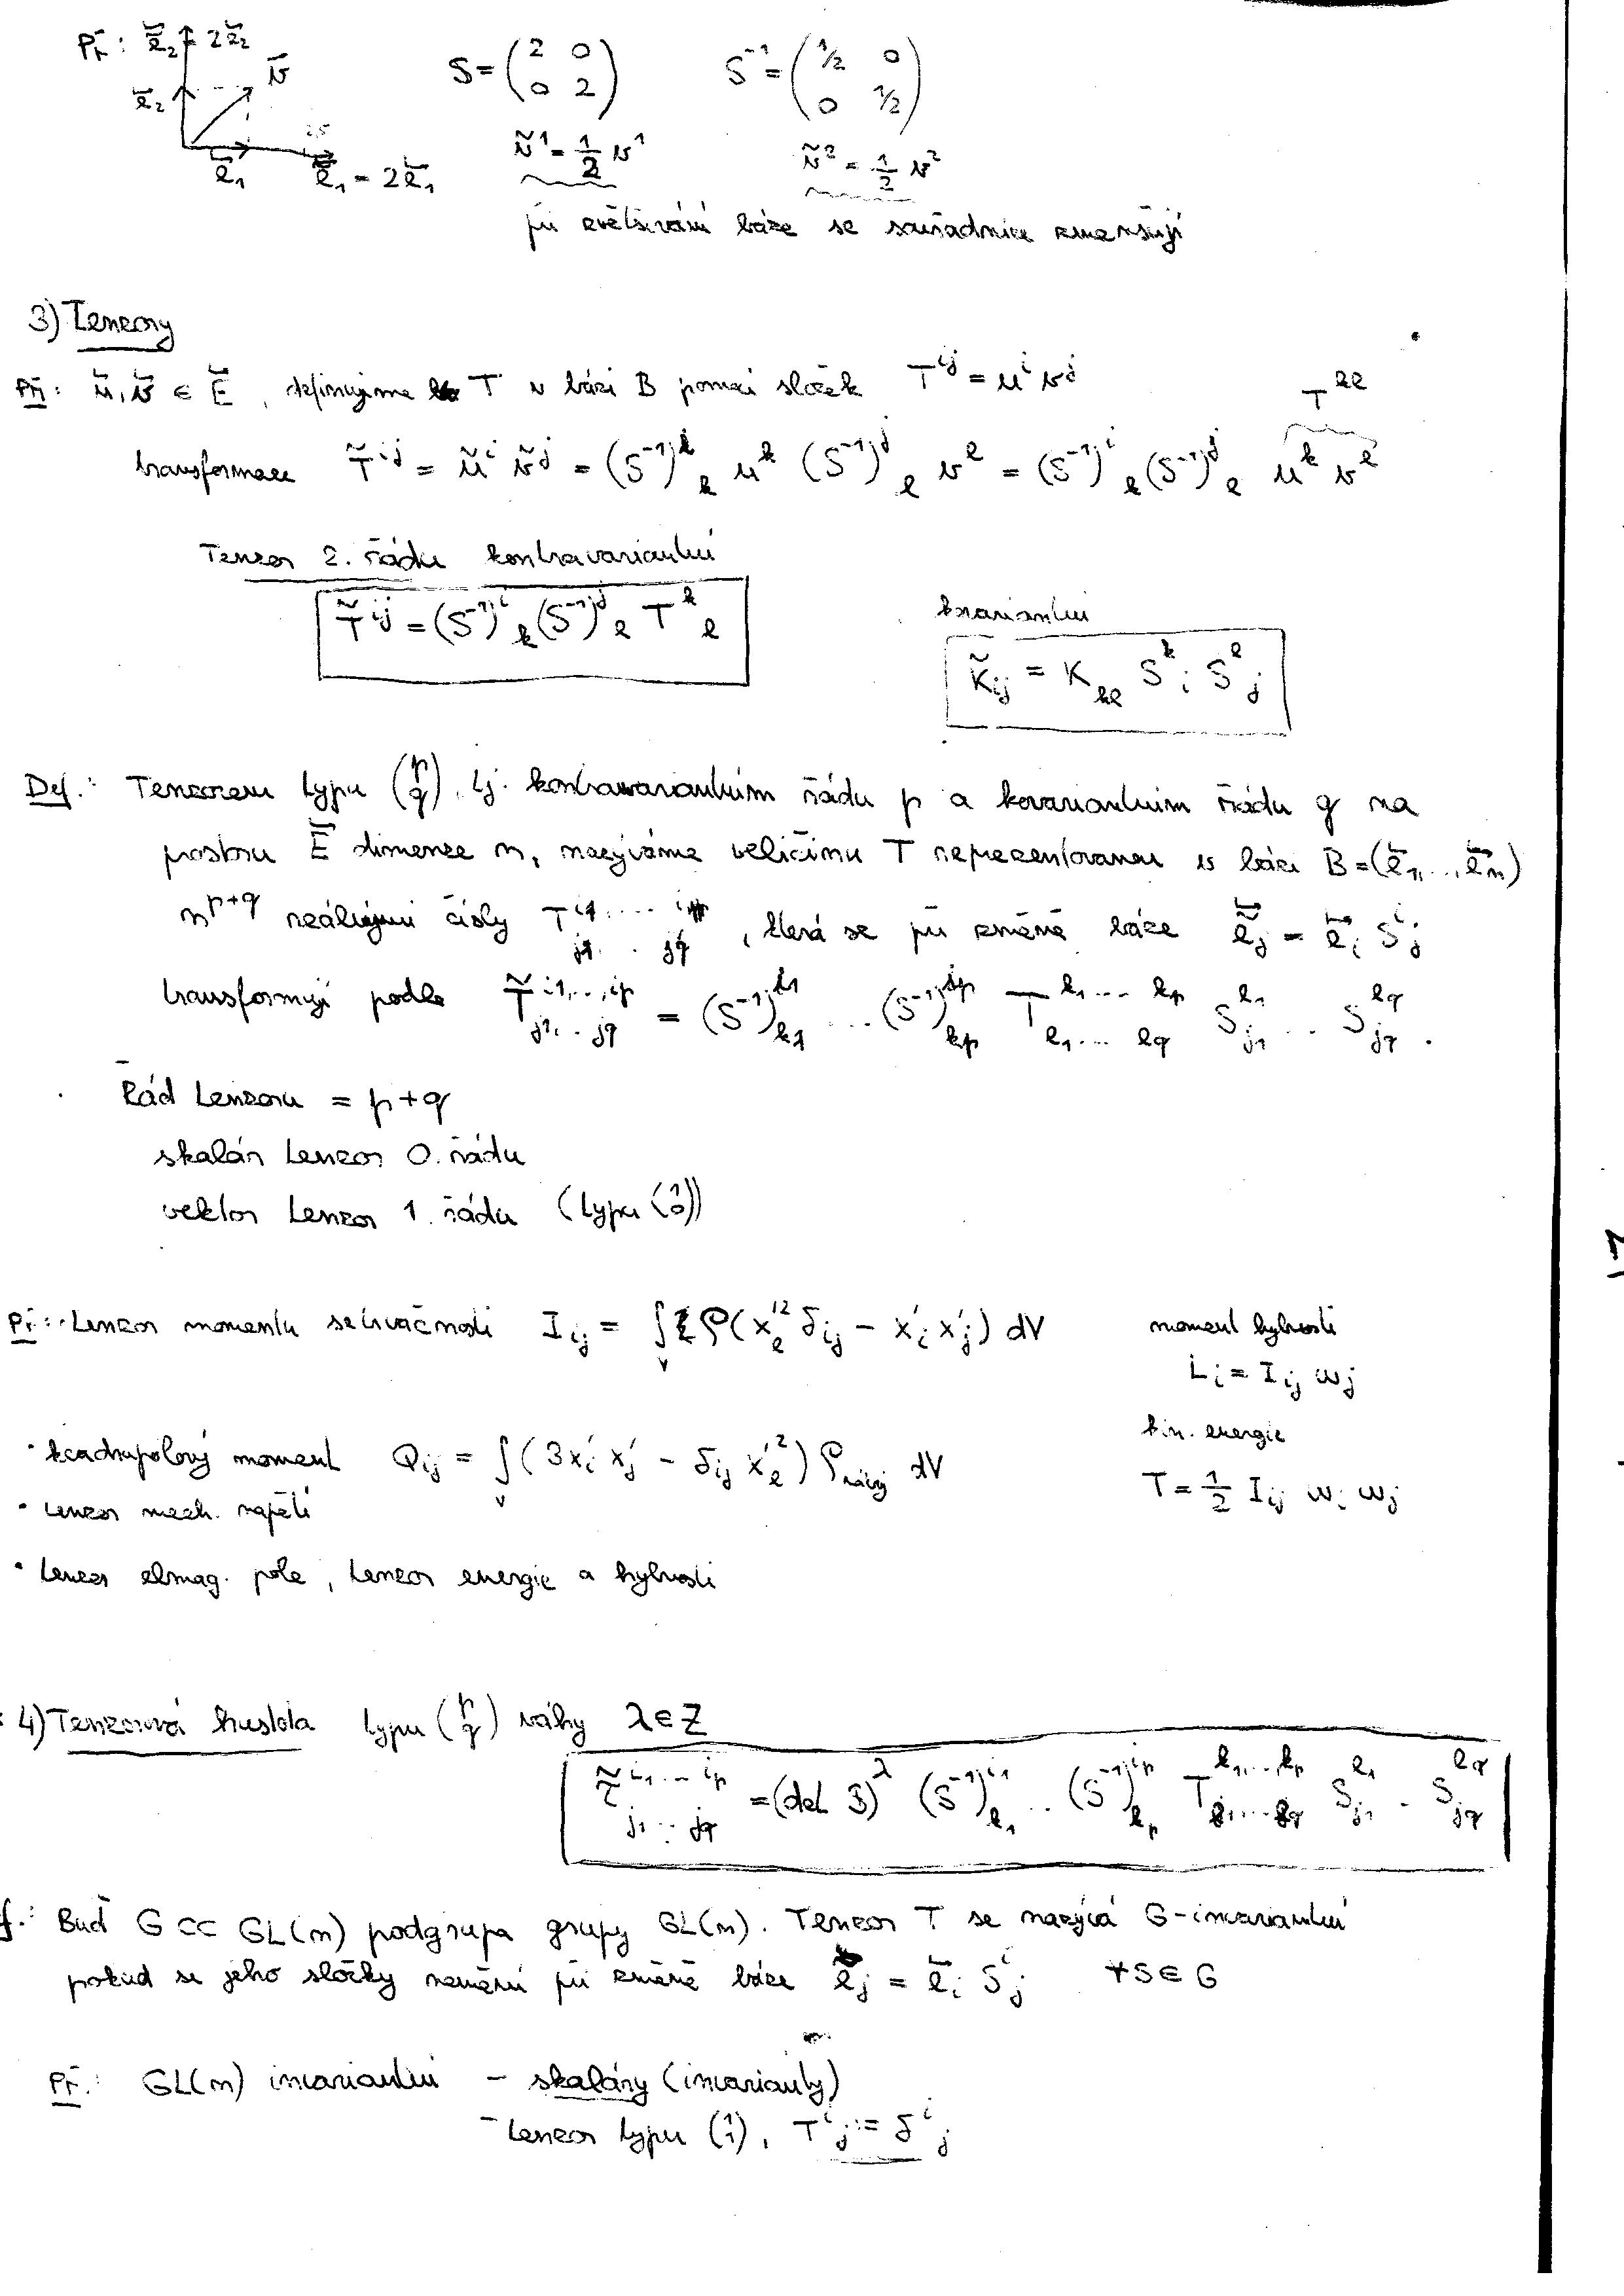 Př: ẽ₂ 2e⃗₂ v⃗ S = (2 0 0 2) S⁻¹ = (1/2 0 0 1/2)
e⃗₂
e⃗₁ ẽ₁ = 2e⃗₁ ṽ¹ = 1/2 v¹ ṽ² = 1/2 v²
při zvětšování báze se souřadnice zmenšují
3) Tenzory
Př: u⃗, v⃗ ∈ E⃗, definujme T v bázi B pomocí složek T^{ij} = u^i v^j T^{kl}
transformace T̃^{ij} = ũ^i ṽ^j = (S⁻¹)^i_k u^k (S⁻¹)^j_l v^l = (S⁻¹)^i_k (S⁻¹)^j_l u^k v^l
Tenzor 2. řádu kontravariantní
T̃^{ij} = (S⁻¹)^i_k (S⁻¹)^j_l T^k_l
kovariantní
K̃_{ij} = K_{kl} S^k_i S^l_j
Def.: Tenzorem typu (p q), tj. kontravariantním řádu p a kovariantním řádu q na
prostoru E⃗ dimenze n, nazýváme veličinu T reprezentovanou v bázi B = (e⃗₁, ..., e⃗ₙ)
n^{p+q} reálnými čísly T^{i1....ip}_{j1...jq}, která se při změně báze ẽ_j = e⃗_i S^i_j
transformují podle T̃^{i1,..,ip}_{j1...jq} = (S⁻¹)^{i1}_{k1} ... (S⁻¹)^{ip}_{kp} T^{k1...kp}_{l1...lq} S^{l1}_{j1} ... S^{lq}_{jq}.
Řád tenzoru = p+q
skalár tenzor 0. řádu
vektor tenzor 1. řádu (typu (1 0))
Př: · tenzor momentu setrvačnosti I_{ij} = ∫_V ρ(x'_l² δ_{ij} − x'_i x'_j) dV moment hybnosti
L_i = I_{ij} ω_j
kin. energie
· kvadrupolový moment Q_{ij} = ∫_V (3x'_i x'_j − δ_{ij} x'_l²) ρ_{náboj} dV
T = 1/2 I_{ij} ω_i ω_j
· tenzor mech. napětí
· tenzor elmag. pole, tenzor energie a hybnosti
4) Tenzorová hustota typu (p q) váhy λ ∈ Z
τ̃^{i1...ip}_{j1...jq} = (det S)^λ (S⁻¹)^{i1}_{k1} .. (S⁻¹)^{ip}_{kp} T^{k1,...,kp}_{l1...lq} S^{l1}_{j1} .. S^{lq}_{jq}
f.: Buď G ⊂⊂ GL(n) podgrupa grupy GL(n). Tenzor T se nazývá G-invariantní
pokud se jeho složky nemění při změně báze ẽ_j = e⃗_i S^i_j ∀S ∈ G
Př.: GL(n) invariantní – skaláry (invarianty)
– tenzor typu (1 1), T^i_j := δ^i_j